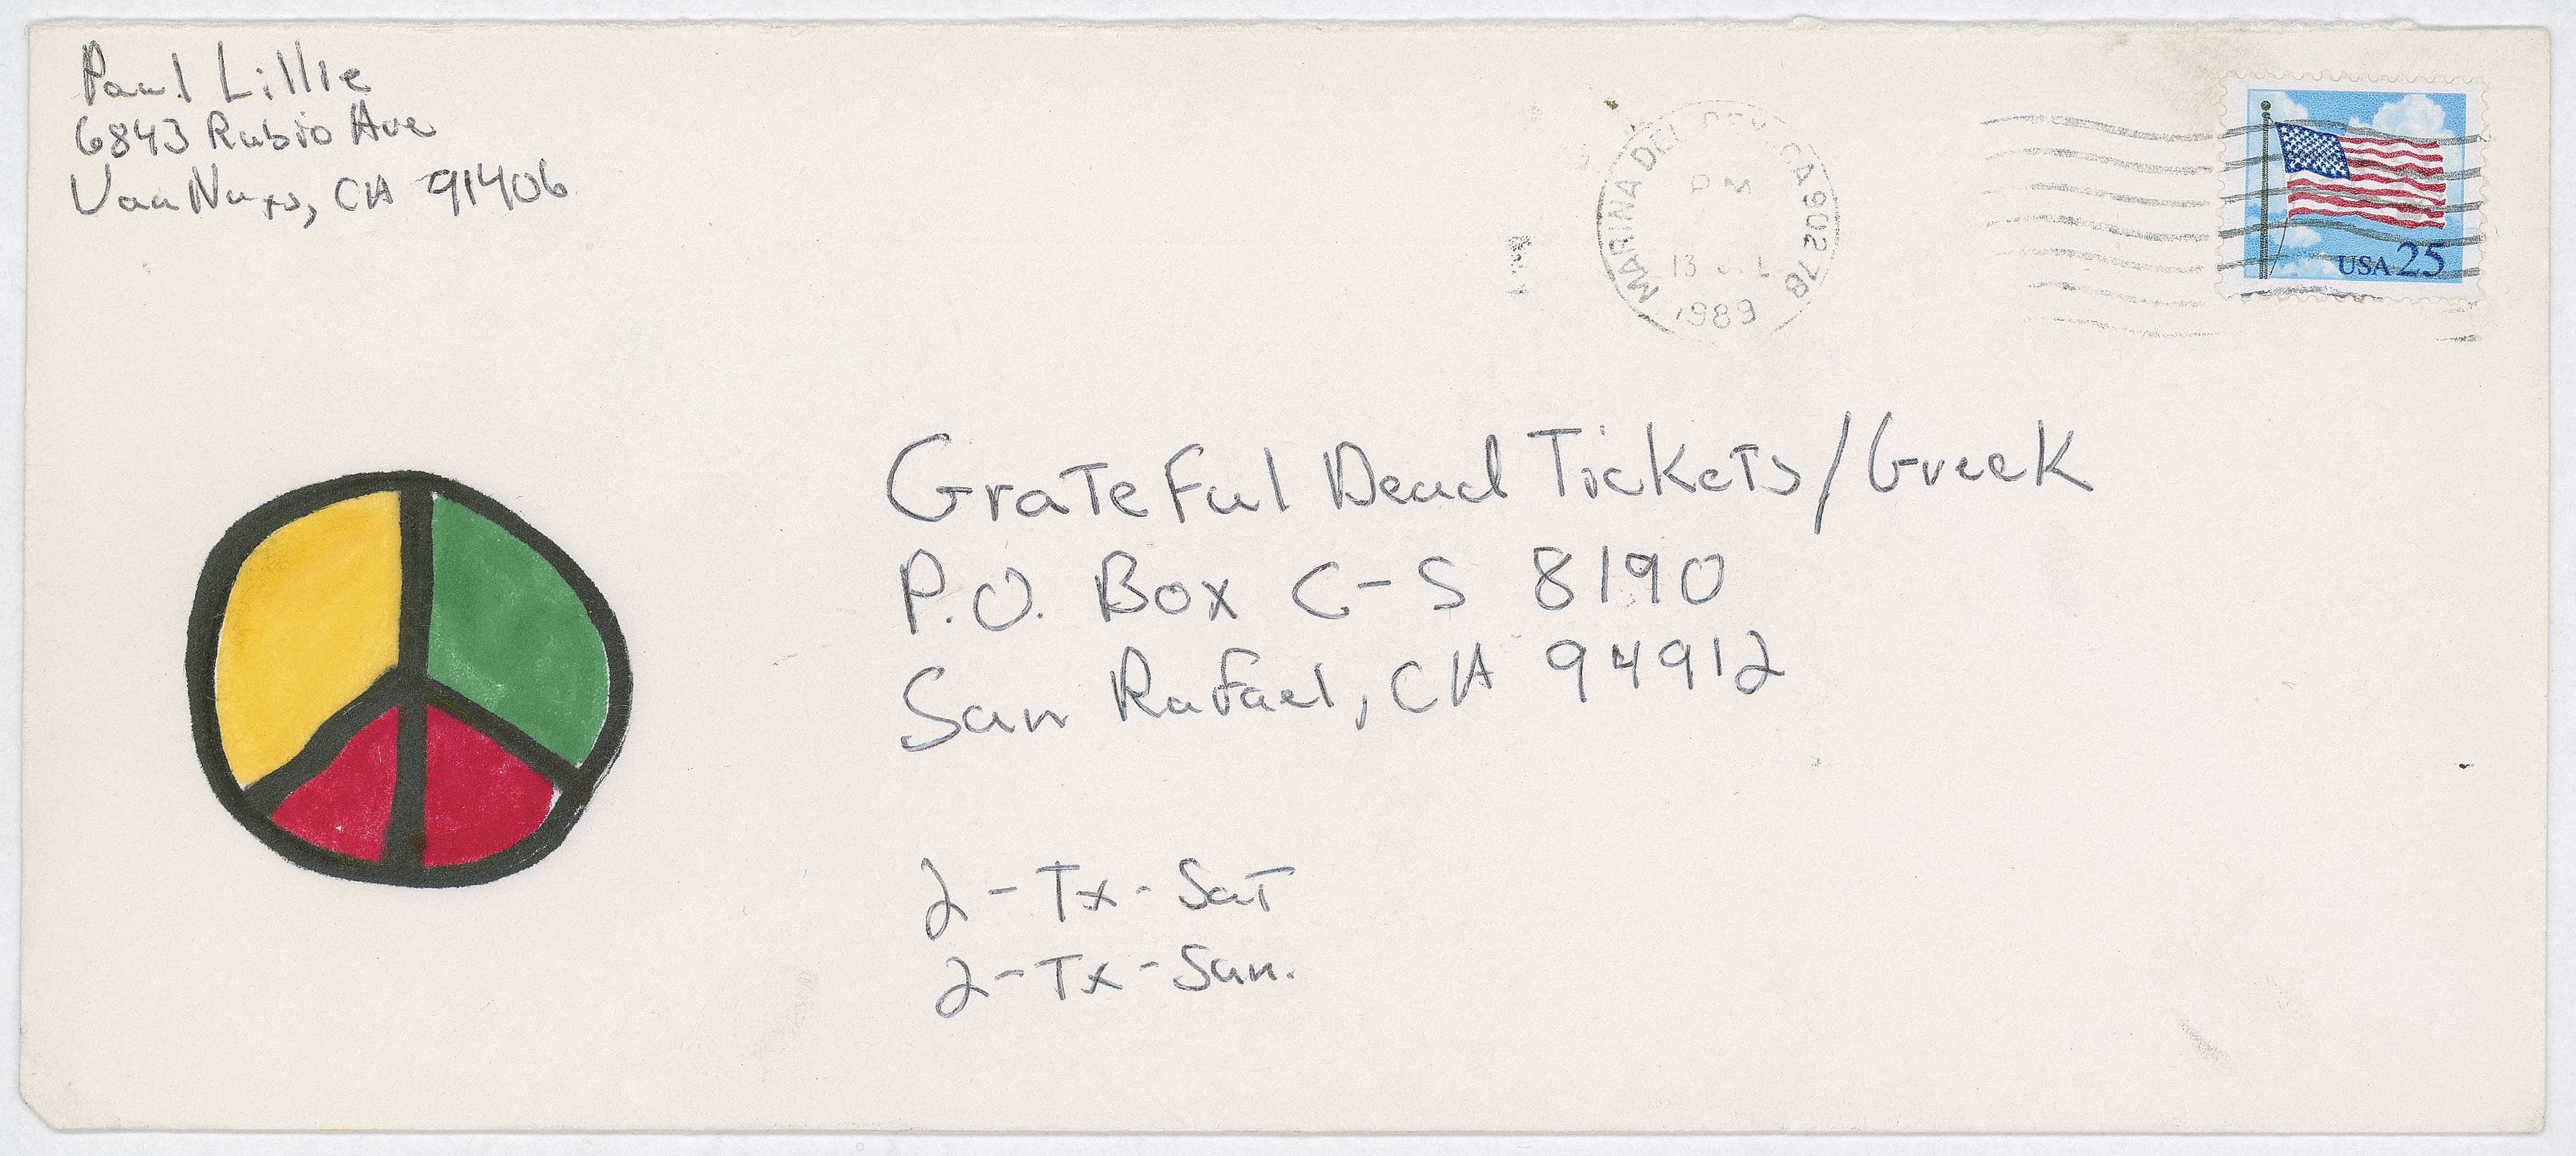 Paul Lillie
6843 Rubio Ave
Van Nuys, CA 91406
MARINA DEL REY, CA 90278
PM
13
1989
USA 25
Grateful Dead Tickets/Greek
P.O. Box C-S 8190
San Rafael, CA 94912
2-Tx-Sat
2-Tx-Sun.